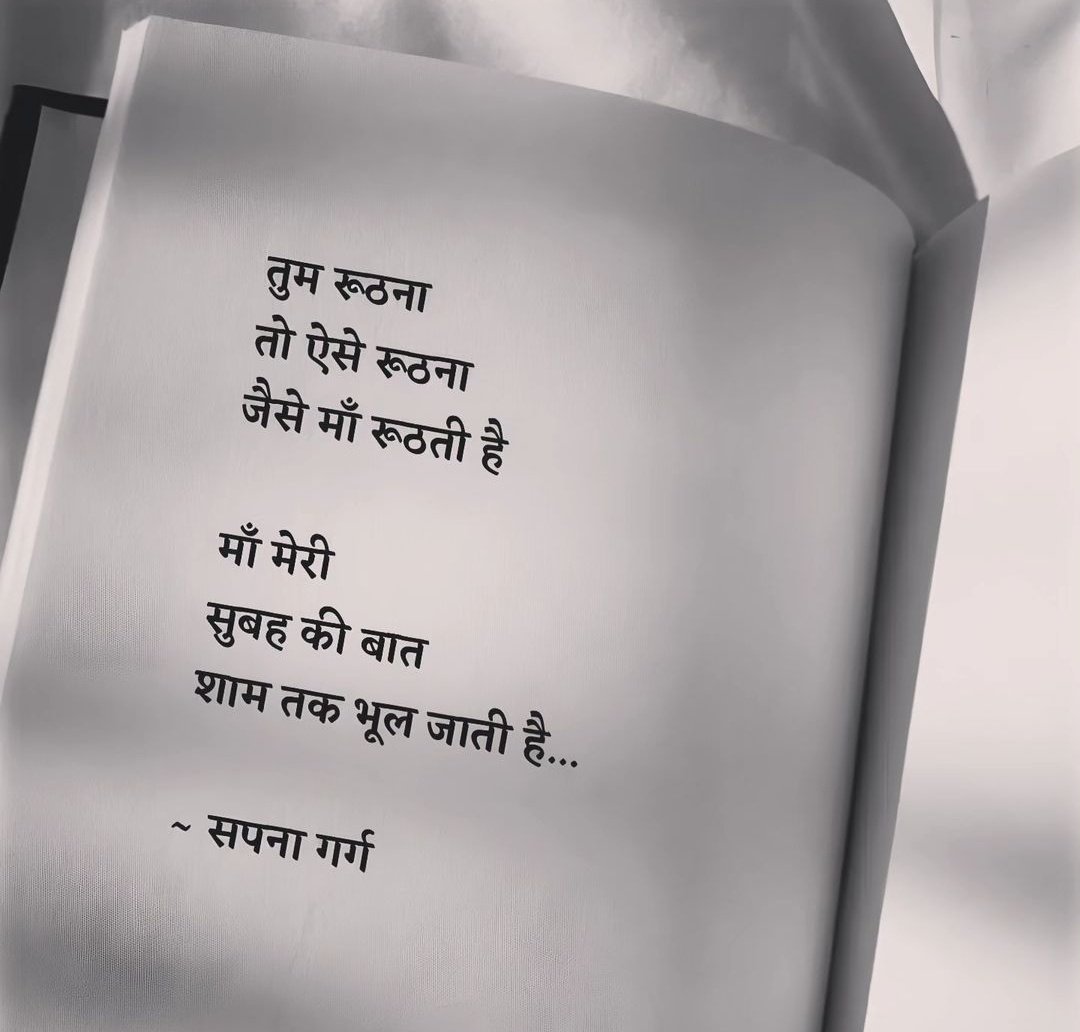 तुम रूठना
तो ऐसे रूठना
जैसे माँ रूठती है
माँ मेरी
सुबह की बात
शाम तक भूल जाती है...
~ सपना गर्ग